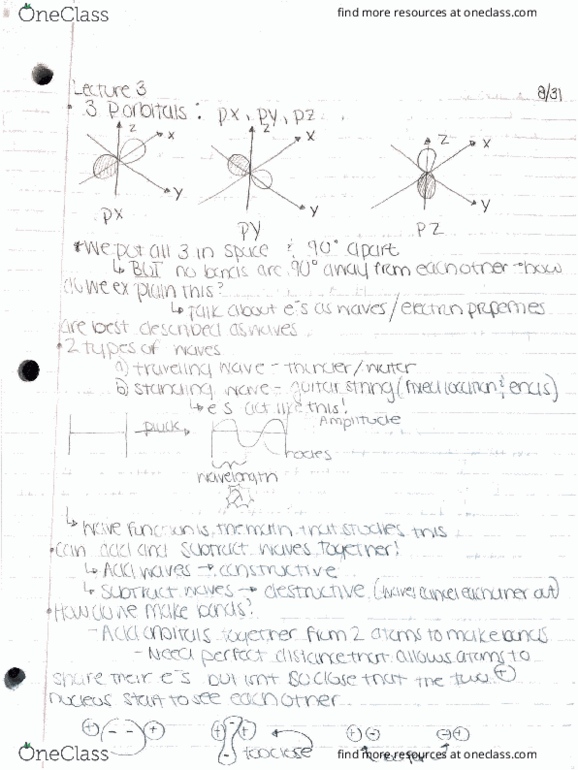 OneClass
find more resources at oneclass.com
Lecture 3
8/31
• 3 P orbitals: px, py, pz
z x z x z x
y y y
px py pz
*We put all 3 in space & 90° apart
↳ BUT no bonds are 90° away from each other → how
do we explain this?
↳ Talk about e⁻s as waves/electron properties
are best described as waves
• 2 types of waves
a) traveling wave - thunder/water
b) standing wave - guitar string (fixed location & ends)
↳ e⁻s act like this!
pluck
Amplitude
nodes
wavelength
↳ Wave function is the math that studies this
• Can add and subtract waves together!
↳ Add waves → constructive
↳ Subtract waves → destructive (waves cancel each other out)
• How do we make bonds?
- Add orbitals together from 2 atoms to make bonds
- Need perfect distance that allows atoms to
share their e⁻s but isn't so close that the two +
nucleus start to see each other
+ - - + + - - + + - - +
too close
OneClass
find more resources at oneclass.com